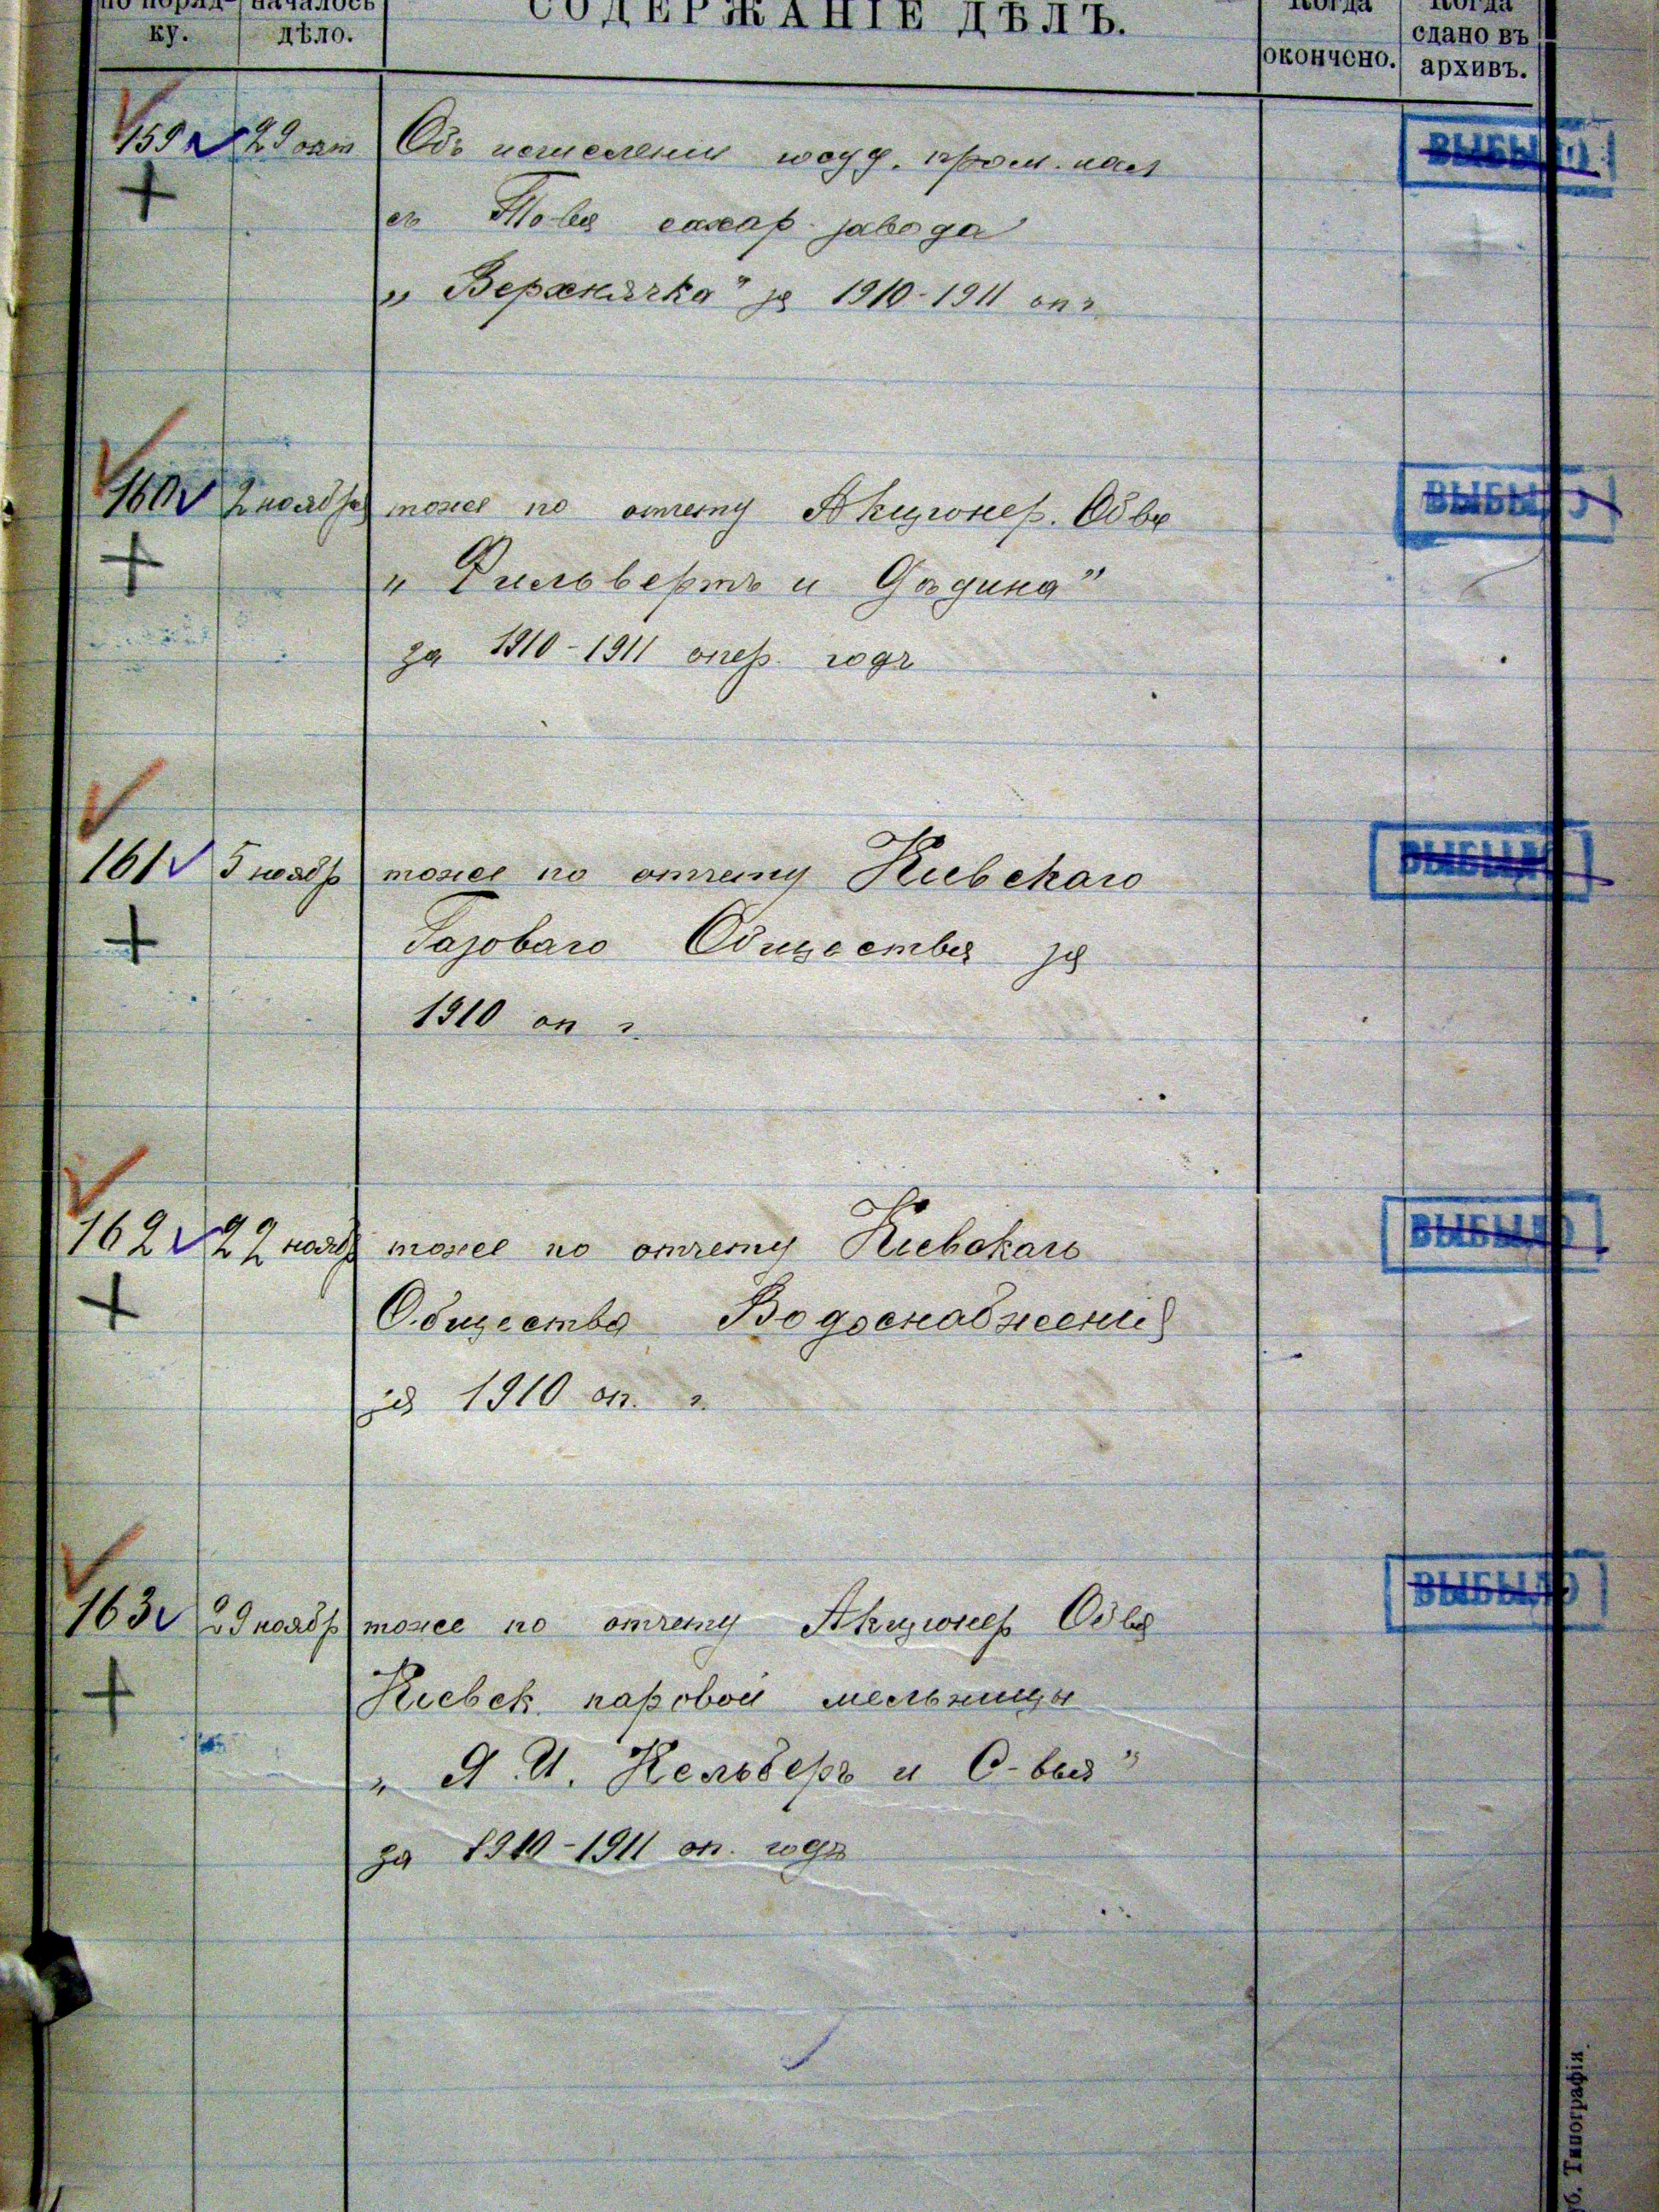 по поряд- началось СОДЕРЖАНІЕ ДѢЛЪ. Когда Когда
ку. дѣло. окончено. сдано въ
архивъ.
159 29 окт Объ исчислении госуд. пром. нал ВЫБЫЛО
съ Т-ва сахар. завода
„Верхнячка" за 1910-1911 оп г.
160 2 ноября тоже по отчету Акционер. Об-ва ВЫБЫЛО
„Фильвертъ и Дѣдина"
за 1910-1911 опер. годъ
161 5 ноябр тоже по отчету Киевскаго ВЫБЫЛО
Газоваго Общества за
1910 оп г.
162 22 ноябр тоже по отчету Киевскаго ВЫБЫЛО
Общества Водоснабжения
за 1910 оп. г.
163 29 ноябр тоже по отчету Акционер Об-ва ВЫБЫЛО
Киевск. паровой мельницы
„Я. И. Кельберъ и С-вья"
за 1910-1911 оп. годъ
уб. Типографія.